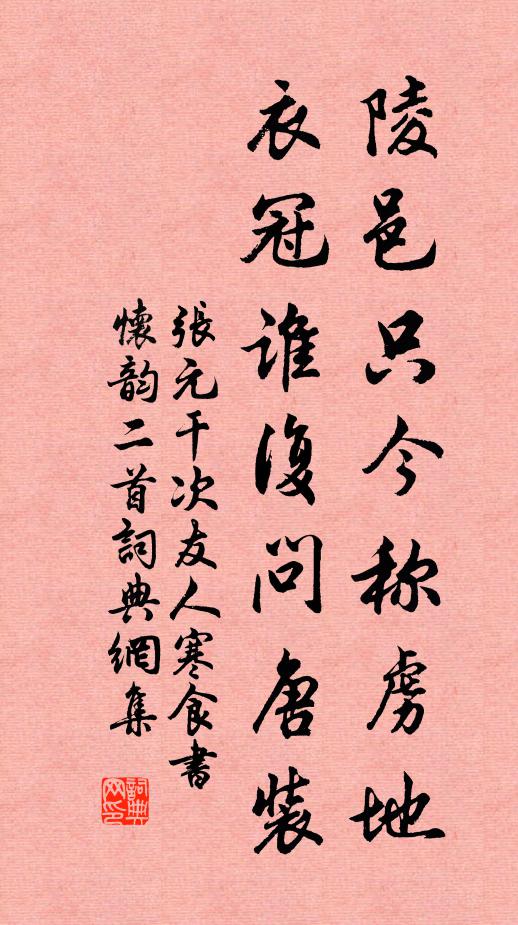 陵邑只今称虏地
衣冠谁復问唐装
張元干次友人寒食書
懷韵二首詞典網集
詞典网印